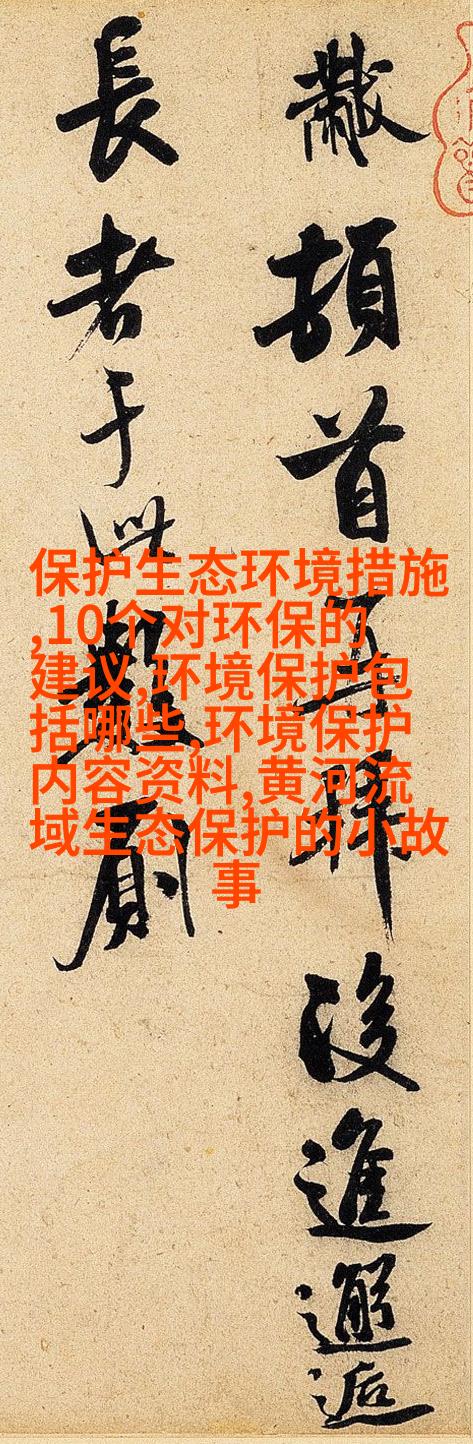 黻頓首再後進邂逅
長者于此
保护生态环境措施
,10个对环保的
建议,环境保护包
括哪些,环境保护
内容资料,黄河流
域生态保护的小故
事